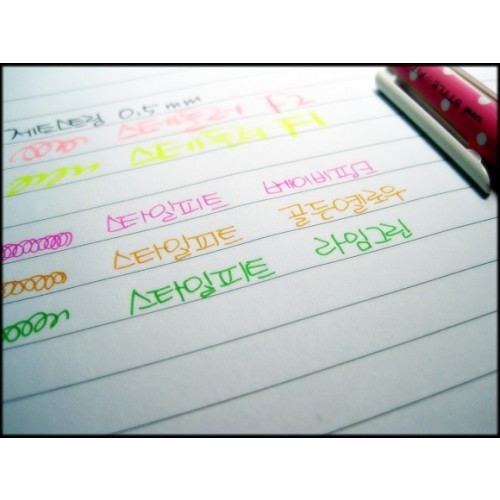 제트스트림 0.5mm
스테들러 F2
스테들러 F1
스타일피트 베이비핑크
스타일피트 골든옐로우
스타일피트 라임그린